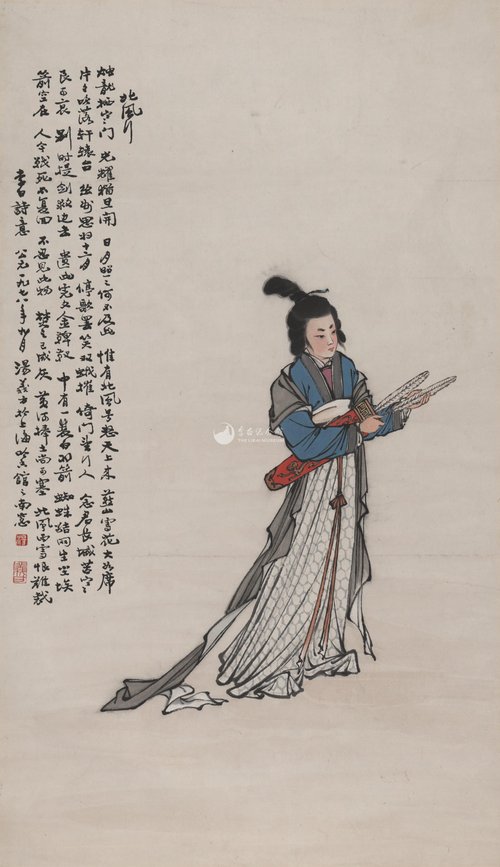 北風行
烛龍栖寒門 光耀猶旦開 日月照之何不及此 惟有北風号怒天上来 燕山雪花大如席
片〻吹落轩辕台 幽州思妇十二月 停歌罢笑双蛾摧 倚門望行人 念君長城苦寒
良可哀 别時提剑救边去 遗此虎文金鞞靫 中有一双白羽箭 蜘蛛结网生尘埃
箭空在 人今战死不复回 不忍見此物 焚之已成灰 黄河捧土尚可塞 北風雨雪恨难裁
李白詩意 公元一九七八年 月 湯義方於上海 館之南窓
THE LIBAI MUSEUM